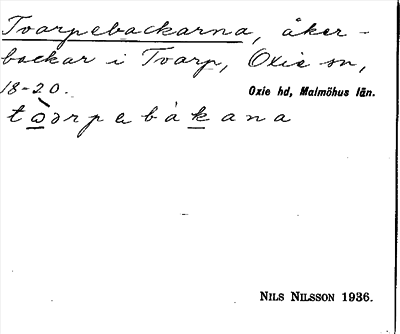 Tvarpebackarna, åker-
backar i Tvarp, Oxie sn,
18-20.
Oxie hd, Malmöhus län.
NILS NILSSON 1936.